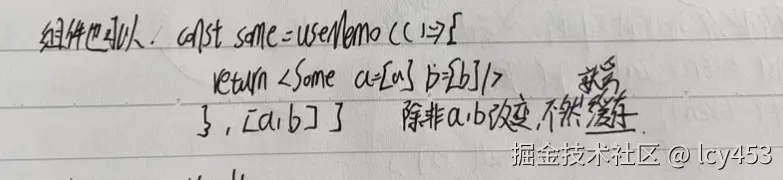 组件也可以. const some = useMemo(()=>{
return <Some a={a} b={b}/>
就会
}, [a,b] } 除非a,b改变,不然缓存.
掘金技术社区 @ lcy453